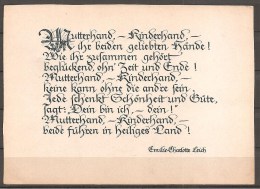 Mutterhand, – Kinderhand, –
Ihr beiden geliebten Hände!
Wie ihr zusammen gehört
beglückend, ohn' Zeit und Ende!
Mutterhand, – Kinderhand, –
keine kann ohne die andre sein,
Jede schenkt Schönheit und Güte,
sagt: „Dein bin ich, – dein!"
Mutterhand, – Kinderhand, –
beide führen in heiliges Land!
Emilie-Charlotte